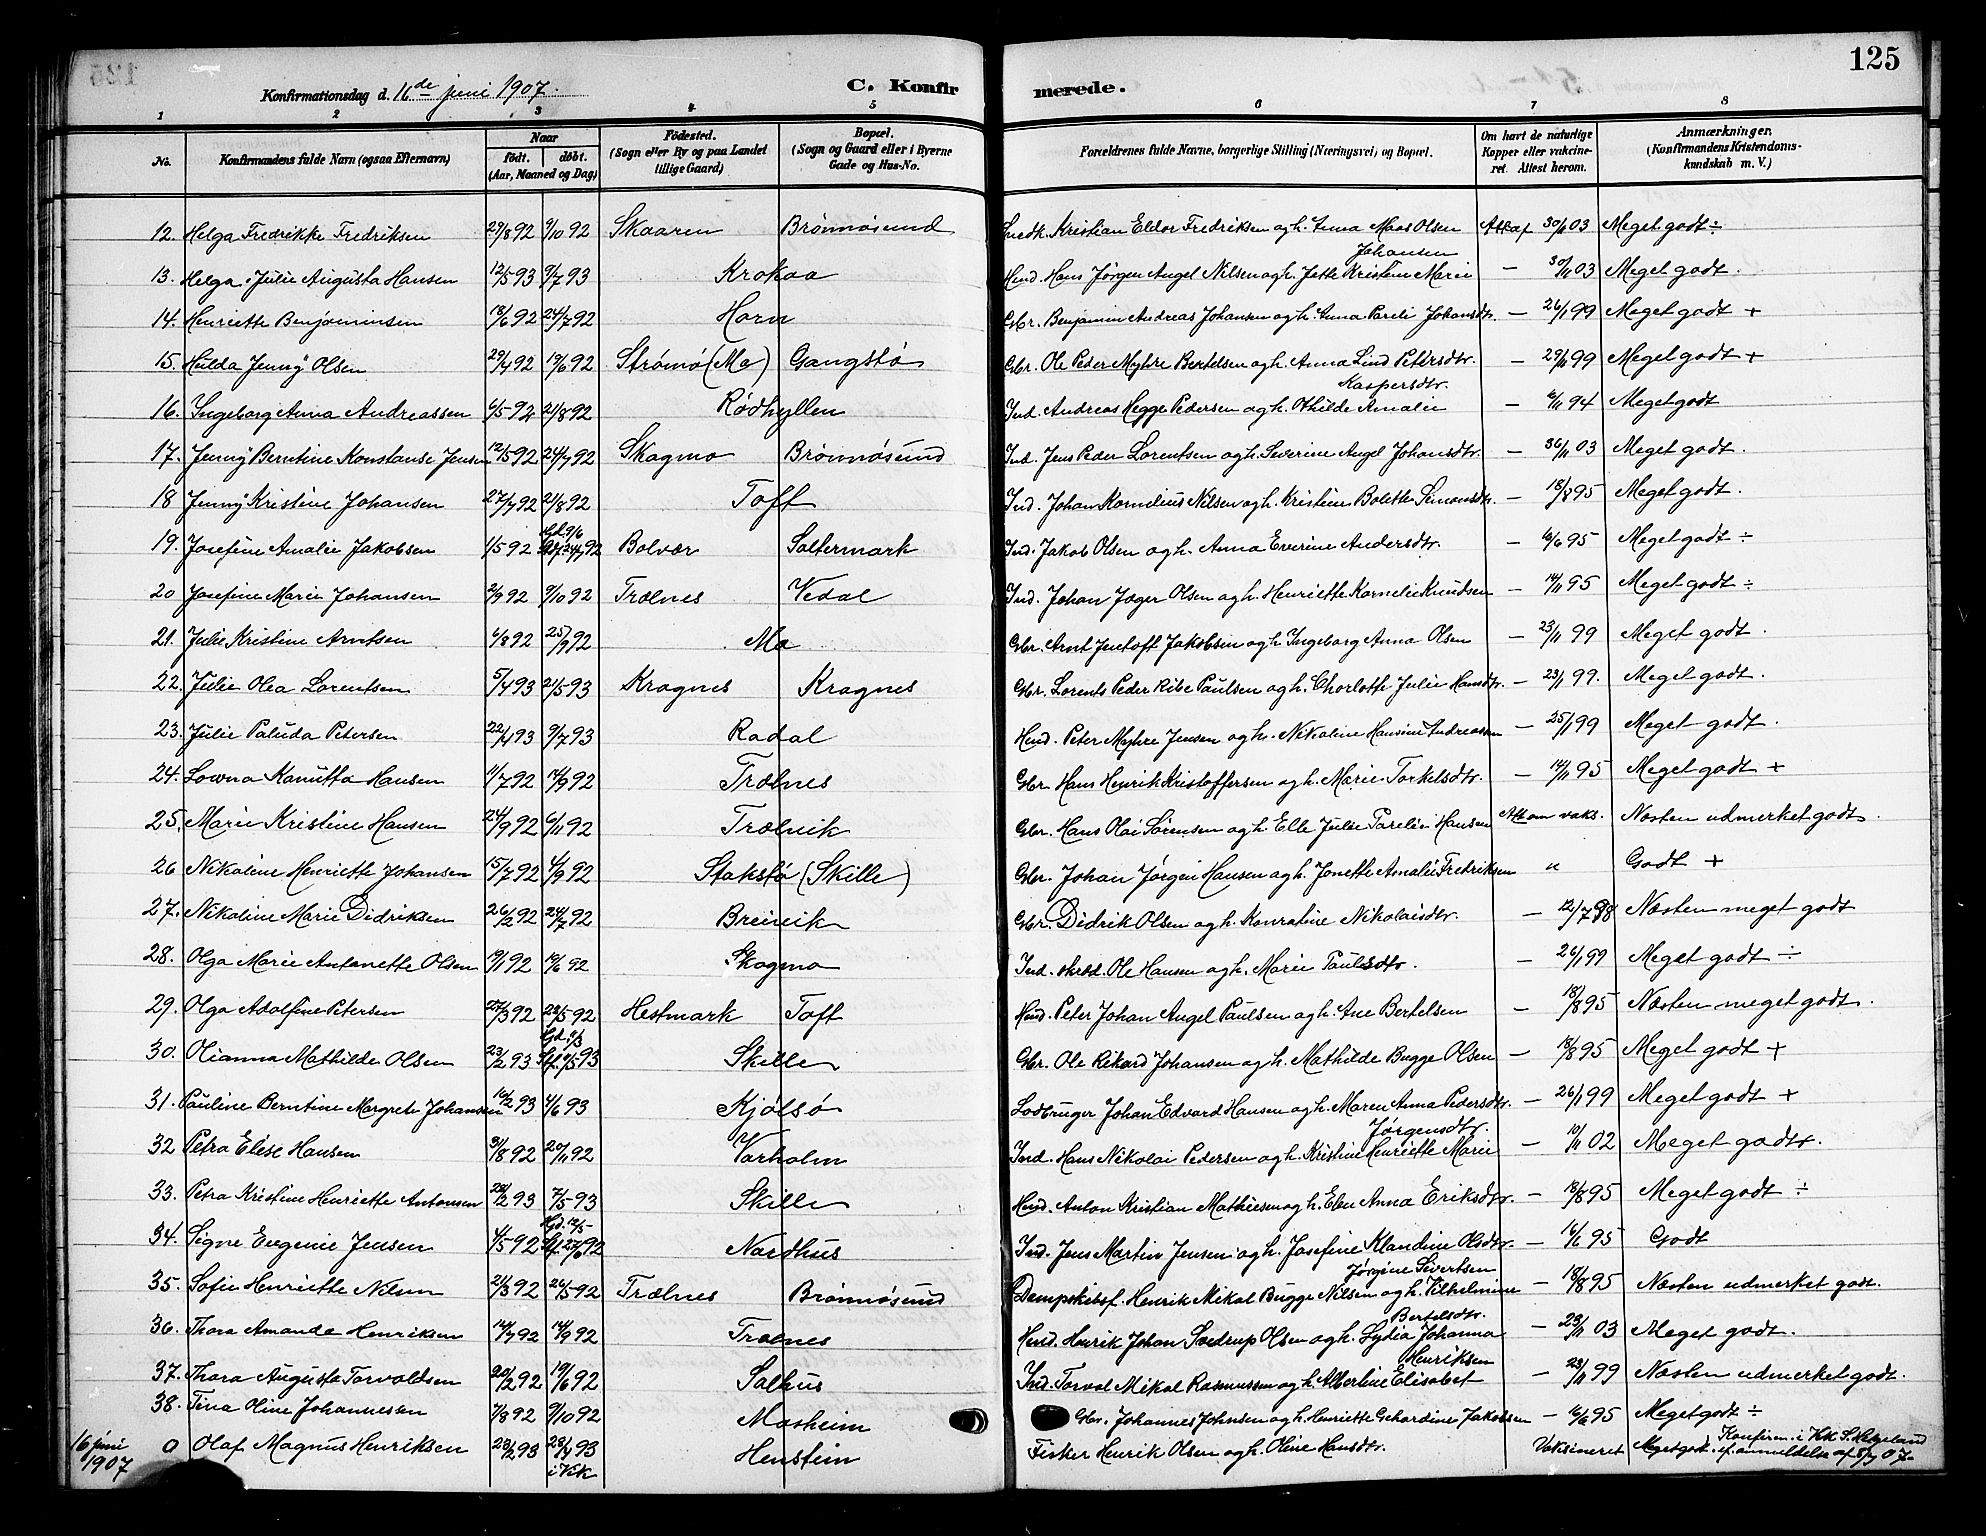 125
Konfirmationsdag d. 16de juni 1907.
C. Konfirmerede.
1 2 3 4 5 6 7 8
No. Konfirmandens fulde Navn (ogsaa Efternavn) Naar født. døbt. (Aar, Maaned og Dag) Fødested. (Sogn eller By og paa Landet tillige Gaard) Bopæl. (Sogn og Gaard eller i Byerne Gade og Hus-No. Forældrenes fulde Navne, borgerlige Stilling (Næringsvei) og Bopæl. Om havt de naturlige Kopper eller vakcineret. Attest herom. Anmærkninger. (Konfirmandens Kristendomskundskab m. V.)
12. Helga Fredrikke Fredriksen 29/8 92 9/10 92 Skaaren Brønnøsund Snedk. Kristian Eldor Fredriksen og h. Anna Maas Olsen Att af 30/11 03 Meget godt ÷
Johansen
13. Helga Julie Augusta Hansen 12/5 93 9/7 93 Krokaa Husd. Hans Jørgen Angel Nilsen og h. Jette Kristine Marie — 30/11 03 Meget godt.
14. Henriette Benjaminsen 18/6 92 24/7 92 Horn Gbr. Benjamin Andreas Johansen og h. Anna Pareli Johansdtr. — 26/1 99 Meget godt +
15. Hulda Jenny Olsen 29/4 92 19/6 92 Strømø (Mo) Gangstø Gbr. Ole Peder Myhre Bertelsen og h. Anna Lind Petersdtr. — 29/11 99 Meget godt +
Kaspersdtr.
16. Ingeborg Anna Andreassen 6/5 92 21/8 92 Rødhyllen Ind. Andreas Hegge Pedersen og h. Othilde Amalie — 6/11 94 Meget godt
17. Jenny Berntine Konstanse Jensen 12/5 92 24/7 92 Skogmo Brønnøsund Ind. Jens Peder Lorentsen og h. Severine Angel Johansdtr. — 30/11 03 Meget godt.
18 Jenny Kristine Johansen 27/7 92 21/8 92 Toft Ind. Johan Kornelius Nilsen og h. Kristine Bolette Simonsdtr. — 18/8 95 Meget godt.
Hd. 9/6
19. Josefine Amalie Jakobsen 1/5 92 24/7 92 Bolvær Saltermark Ind. Jakob Olsen og h. Anna Everine Andersdtr. — 16/6 95 Meget godt ÷
20 Josefine Marie Johansen 2/9 92 9/10 92 Trælnes Vedal Ind. Johan Jager Olsen og h. Henriette Kornelie Knudsen — 14/11 95 Meget godt ÷
21. Julie Kristine Arntsen 6/8 92 25/9 92 Mo Gbr. Arnt Jentoft Jakobsen og h Ingeborg Anna Olsen — 23/11 99 Meget godt.
22. Julie Olea Lorentsen 5/4 93 21/5 93 Kragnes Kragnes Gbr. Lorents Peder Ribe Paulsen og h. Charlotte Julie Hansdtr. — 23/1 99. Meget godt.
23. Julie Paluda Petersen 22/4 93 9/7 93 Rodal Husd. Peter Myhre Jensen og h. Nikoline Hansine Andreassen — 25/1 99 Meget godt.
24. Lowna Kanutta Hansen 11/7 92 14/9 92 Trælnes Gbr. Hans Henrik Kristoffersen og h. Marie Torkelsdtr. — 14/11 95 Meget godt +
25. Marie Kristine Hansen 24/9 92 6/11 92 Trælvik Gbr. Hans Olai Sørensen og h. Elle Julie Pareli Hansen Att om vaks. Næsten udmerket godt.
26 Nikoline Henriette Johansen 15/7 92 4/9 92 Stokstø (Skille) Gbr. Johan Jørgen Hansen og h. Jonette Amalie Fredriksen " Godt +
27. Nikoline Marie Didriksen 26/2 92 24/7 92 Breivik Gbr. Didrik Olsen og h. Konratine Nikolaisdtr. — 12/7 98 Næsten meget godt
28. Olga Marie Antonette Olsen 19/1 92 19/6 92 Skogmo Ind. skred. Ole Hansen og h. Marie Paulsdtr. — 26/1 99 Meget godt ÷
29. Olga Adolfine Petersen 27/3 92 29/5 92 Hestmark Toft Husd. Peter Johan Angel Paulsen og h. Ane Bertelsen — 18/8 95 Næsten meget godt.
Hd. 5/3
30. Olianna Mathilde Olsen 23/2 93 Stf. 11/5 93 Skille Gbr. Ole Rikard Johansen og h. Mathilde Bugge Olsen — 18/8 95 Meget godt +
31. Pauline Berntine Margrete Johansen 10/2 93 4/6 93 Kjølsø Lodbruger Johan Edvard Hansen og h. Maren Anna Pedersdtr. — 26/1 99 Meget godt +
Jørgensdtr.
32 Petra Elise Hansen 31/8 92 20/11 92 Varholm Ind. Hans Nikolai Pedersen og h. Kristine Henriette Marie — 10/11 02 Meget godt.
33. Petra Kristine Henriette Antonsen 28/2 93 7/5 93 Skille Husd. Anton Kristian Mathiesen og h. Elen Anna Eriksdtr. — 18/8 95 Meget godt ÷
Hd. 12/5
34. Signe Eugenie Jensen 4/5 92 Stf. 27/6 92 Nordhus Ind. Jens Martin Jensen og h. Josefine Klaudine Olsdtr. — 16/6 95 Godt
Jørgine Sivertsen
35. Sofie Henriette Nilsen 21/3 92 26/5 92 Trælnes Brønnøsund Dampskibsf. Henrik Mikal Bugge Nilsen og h. Vilhelmine — 18/8 95 Næsten udmerket godt.
Bertelsdtr.
36. Thora Amanda Henriksen 14/7 92 14/9 92 Trælnes Husd. Henrik Johan Sverdrup Olsen og h. Lydia Johanna — 23/11 03 Meget godt.
Henriksen
37. Thora Augusta Torvaldsen 20/2 92 19/6 92 Salhus Ind. Torval Mikal Rasmussen og h. Albertine Elisabet — 23/11 99 Næsten udmerket godt.
38. Tina Oline Johannessen 7/8 92 9/10 92 Mosheim Gbr. Johannes Johnsen og h. Henriette Gehardine Jakobsen — 16/6 95 Meget godt ÷
16 juni 1907 0 Olaf Magnus Henriksen 23/2 93 23/4 93 i Vkk Henstein Fisker Henrik Olsen og h. Oline Hansdtr. Vaksineret Meget godt. Konfirm. i Vkk S. Helgeland
if. anmeldelse af 8/7 07.